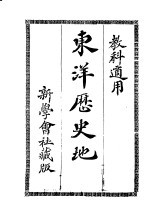 教科適用
東洋歷史地
新學會社藏版